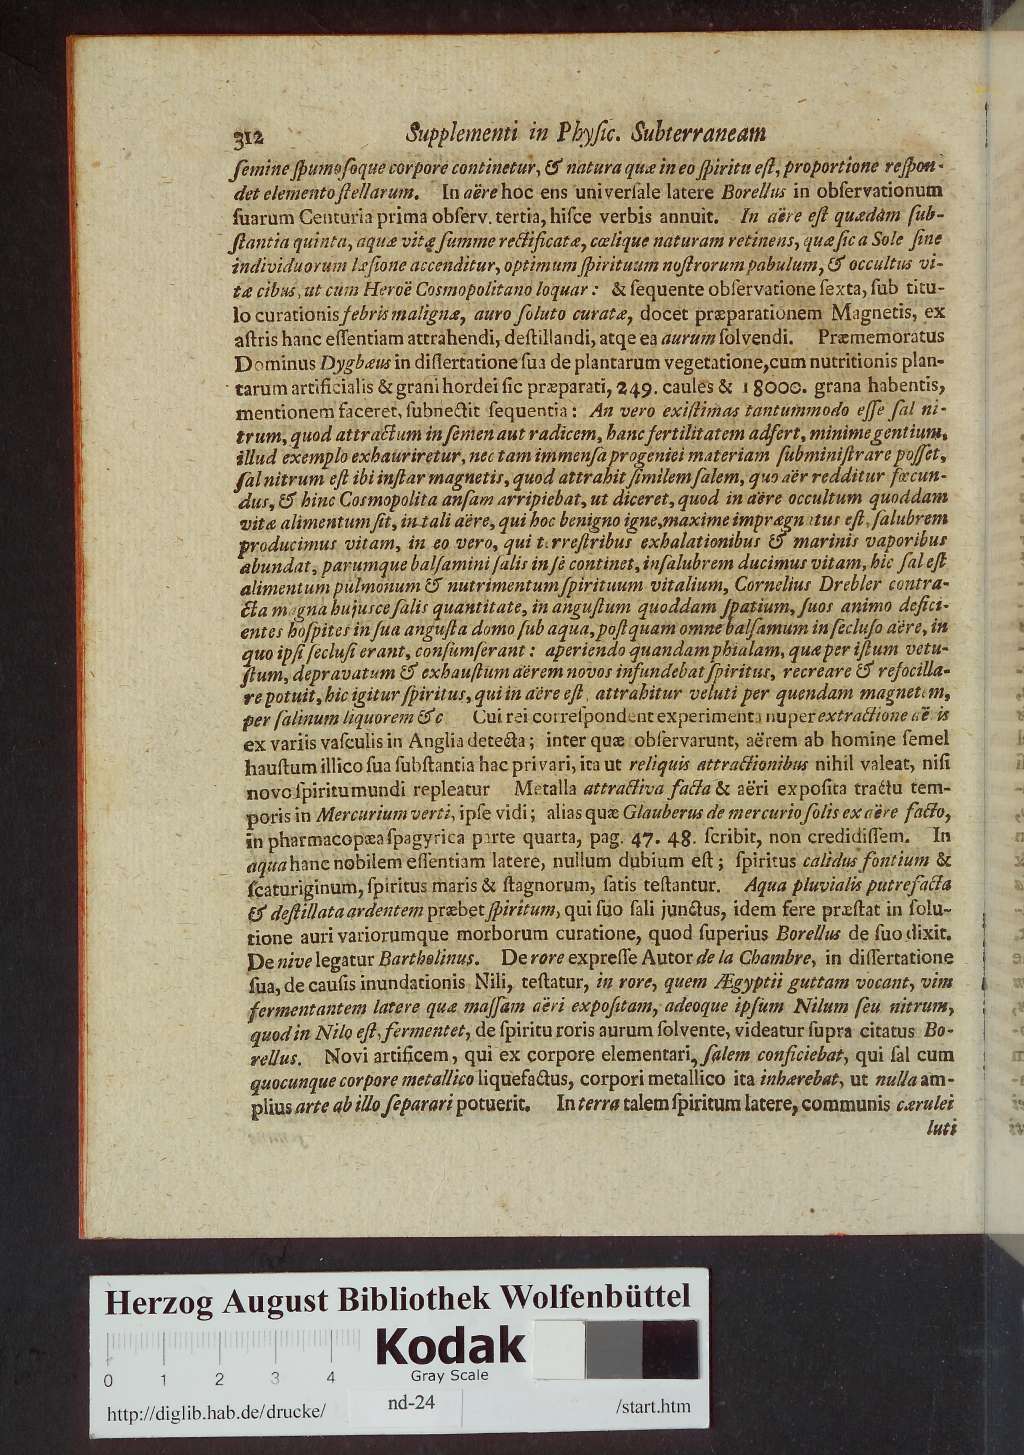 312 Supplementi in Phyſic. Subterraneam
ſemine ſpumoſoque corpore continetur, & natura quæ in eo ſpiritu eſt, proportione reſpon-
det elemento ſtellarum. In aëre hoc ens univerſale latere Borellus in obſervationum
ſuarum Centuria prima obſerv. tertia, hiſce verbis annuit. In aëre eſt quædam ſub-
ſtantia quinta, aquæ vitæ ſumme rectificatæ, cœlique naturam retinens, quæ ſic a Sole ſine
individuorum læſione accenditur, optimum ſpirituum noſtrorum pabulum, & occultus vi-
tæ cibus, ut cum Heroë Coſmopolitano loquar: & ſequente obſervatione ſexta, ſub titu-
lo curationis febris malignæ, auro ſoluto curatæ, docet præparationem Magnetis, ex
aſtris hanc eſſentiam attrahendi, deſtillandi, atqe ea aurum ſolvendi. Præmemoratus
Dominus Dygbæus in diſſertatione ſua de plantarum vegetatione, cum nutritionis plan-
tarum artificialis & grani hordei ſic præparati, 249. caules & 18000. grana habentis,
mentionem faceret, ſubnectit ſequentia: An vero exiſtimas tantummodo eſſe ſal ni-
trum, quod attractum in ſemen aut radicem, hanc fertilitatem adfert, minime gentium,
illud exemplo exhauriretur, nec tam immenſa progeniei materiam ſubminiſtrare poſſet,
ſal nitrum eſt ibi inſtar magnetis, quod attrahit ſimilem ſalem, quo aër redditur fœcun-
dus, & hinc Coſmopolita anſam arripiebat, ut diceret, quod in aëre occultum quoddam
vitæ alimentum ſit, in tali aëre, qui hoc benigno igne, maxime imprægnatus eſt, ſalubrem
producimus vitam, in eo vero, qui terreſtribus exhalationibus & marinis vaporibus
abundat, parumque balſamini ſalis in ſe continet, inſalubrem ducimus vitam, hic ſal eſt
alimentum pulmonum & nutrimentum ſpirituum vitalium, Cornelius Drebler contra-
cta magna hujusce ſalis quantitate, in anguſtum quoddam ſpatium, ſuos animo defici-
entes hoſpites in ſua anguſta domo ſub aqua, poſtquam omne balſamum in ſecluſo aëre, in
quo ipſi ſecluſi erant, conſumſerant: aperiendo quandam phialam, quæ per iſtum vetu-
ſtum, depravatum & exhauſtum aërem novos infundebat ſpiritus, recreare & refocilla-
re potuit, hic igitur ſpiritus, qui in aëre eſt, attrahitur veluti per quendam magnetem,
per ſalinum liquorem &c Cui rei correſpondent experimenta nuper extractione aëris
ex variis vaſculis in Anglia detecta; inter quæ obſervarunt, aërem ab homine ſemel
hauſtum illico ſua ſubſtantia hac privari, ita ut reliquis attractionibus nihil valeat, niſi
novo ſpiritu mundi repleatur Metalla attractiva facta & aëri expoſita tractu tem-
poris in Mercurium verti, ipſe vidi; alias quæ Glauberus de mercurio ſolis ex aëre facto,
in pharmacopœa ſpagyrica parte quarta, pag. 47. 48. ſcribit, non credidiſſem. In
aqua hanc nobilem eſſentiam latere, nullum dubium eſt; ſpiritus calidus fontium &
ſcaturiginum, ſpiritus maris & ſtagnorum, ſatis teſtantur. Aqua pluvialis putrefacta
& deſtillata ardentem præbet ſpiritum, qui ſuo ſali junctus, idem fere præſtat in ſolu-
tione auri variorumque morborum curatione, quod ſuperius Borellus de ſuo dixit.
De nive legatur Bartholinus. De rore expreſſe Autor de la Chambre, in diſſertatione
ſua, de cauſis inundationis Nili, teſtatur, in rore, quem Ægyptii guttam vocant, vim
fermentantem latere quæ maſſam aëri expoſitam, adeoque ipſum Nilum ſeu nitrum,
quod in Nilo eſt, fermentet, de ſpiritu roris aurum ſolvente, videatur ſupra citatus Bo-
rellus. Novi artificem, qui ex corpore elementari, ſalem conficiebat, qui ſal cum
quocunque corpore metallico liquefactus, corpori metallico ita inhærebat, ut nulla am-
plius arte ab illo ſeparari potuerit. In terra talem ſpiritum latere, communis cærulei
luti
Herzog August Bibliothek Wolfenbüttel
Kodak
Gray Scale
0 1 2 3 4
http://diglib.hab.de/drucke/ nd-24 /start.htm